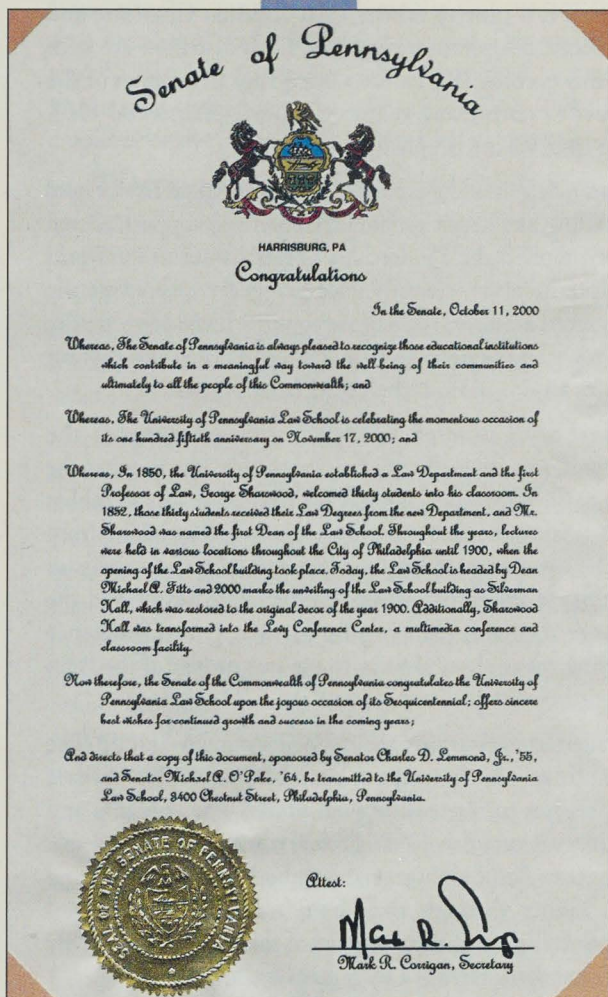 Senate of Pennsylvania
HARRISBURG, PA
Congratulations
In the Senate, October 11, 2000
Whereas, The Senate of Pennsylvania is always pleased to recognize those educational institutions
which contribute in a meaningful way toward the well-being of their communities and
ultimately to all the people of this Commonwealth; and
Whereas, The University of Pennsylvania Law School is celebrating the momentous occasion of
its one hundred fiftieth anniversary on November 17, 2000; and
Whereas, In 1850, the University of Pennsylvania established a Law Department and the first
Professor of Law, George Sharswood, welcomed thirty students into his classroom. In
1852, those thirty students received their Law Degrees from the new Department, and Mr.
Sharswood was named the first Dean of the Law School. Throughout the years, lectures
were held in various locations throughout the City of Philadelphia until 1900, when the
opening of the Law School building took place. Today, the Law School is headed by Dean
Michael A. Fitts and 2000 marks the unveiling of the Law School building as Silverman
Hall, which was restored to the original decor of the year 1900. Additionally, Sharswood
Hall was transformed into the Levy Conference Center, a multimedia conference and
classroom facility.
Now therefore, the Senate of the Commonwealth of Pennsylvania congratulates the University of
Pennsylvania Law School upon the joyous occasion of its Sesquicentennial; offers sincere
best wishes for continued growth and success in the coming years;
And directs that a copy of this document, sponsored by Senator Charles D. Lemmond, Jr., '55,
and Senator Michael A. O'Pake, '64, be transmitted to the University of Pennsylvania
Law School, 3400 Chestnut Street, Philadelphia, Pennsylvania.
SEAL OF THE SENATE OF PENNSYLVANIA
Attest:
Mark R. Corrigan, Secretary